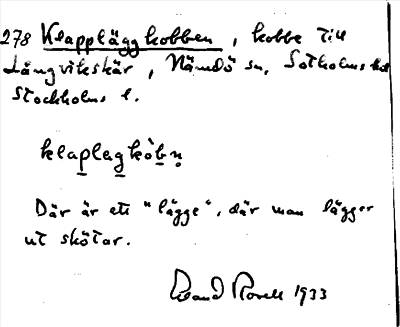 278 Klappläggkobben, kobbe till
Långvikskär, Nämdö sn, Sotholms hd
Stockholms l.
klaplagkòbn̥
Där är ett "lägge", där man lägger
ut skötar.
1933